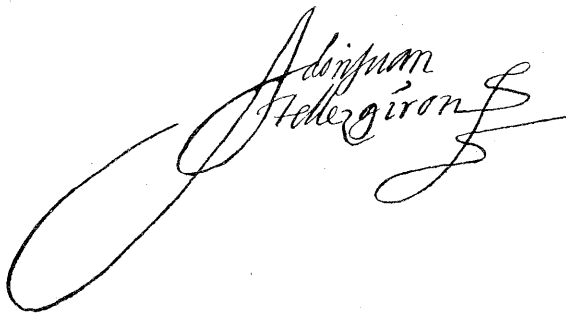 don juan
tellez giron